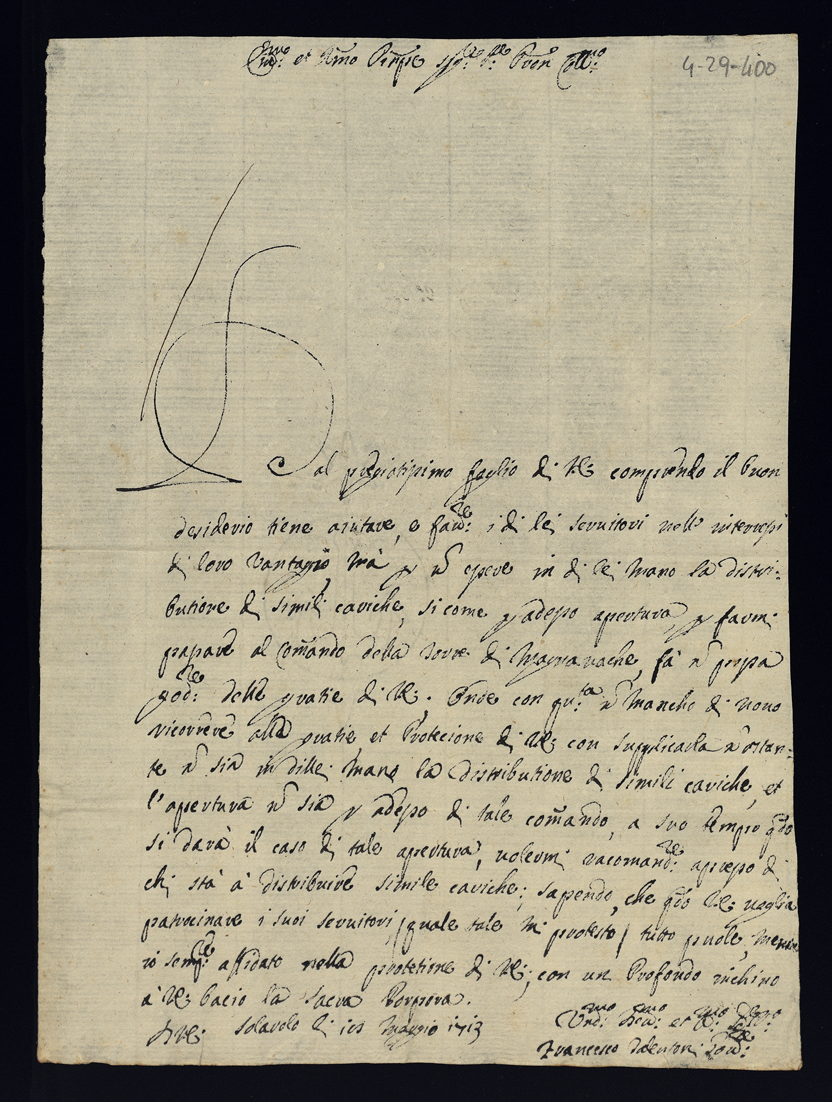 4-29-400
Dal pregiatissimo foglio di VE: comprendo il buon
desiderio tiene aiutare, e favre: i di lei servitori nelle interessi
di loro vantagio, mà p nō essere in di lei mano la distri=
butione di simili cariche, si come p adesso apertura, p farmi
passare al comando della Torre di Magnavache, fà nō possa
god:re delle gratie di VE:. Onde con qu:ta nō mancho di novo
ricorrere alla gratie et Protecione di VE: con supplicarla n'ostan=
te nō sia in di lei mano la distributione di simili cariche, et
l'apertura nō sia p adesso di tale comando, a suo tempo qdo
si darà il caso di tale apertura, volermi racomand:re apresso di
chi stà à distribuire simile cariche; sapendo, che qdo VE: voglia
patrocinare i suoi servitori, quale tale mi protesto, tutto puole, mentre
io semp:re affidato nella protetione di VE:, con un Profondo inchino
à VE: bacio la Sacra Porpora.
DVE: Maggio 1713
Francesco